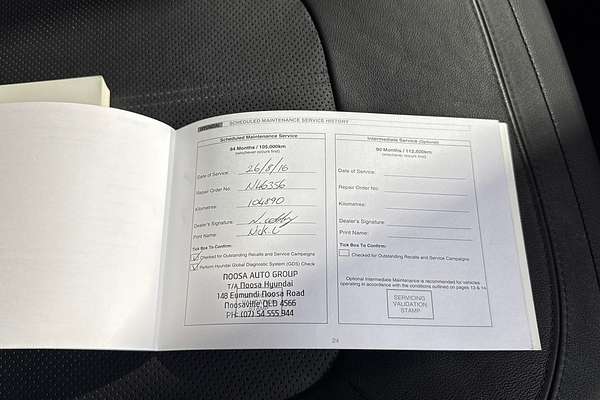 HYUNDAI SCHEDULED MAINTENANCE SERVICE HISTORY
Scheduled Maintenance Service
84 Months / 105,000km
(whichever occurs first)
Date of Service: 26/8/16
Repair Order No: NH6356
Kilometres: 104890
Dealer's Signature:
Print Name: Nick.C
Tick Box To Confirm:
Checked for Outstanding Recalls and Service Campaigns
Perform Hyundai Global Diagnostic System (GDS) Check
NOOSA AUTO GROUP
T/A Noosa Hyundai
148 Eumundi Noosa Road
Noosaville QLD 4566
PH: (07) 54 555 944
Intermediate Service (Optional)
90 Months / 112,500km
(whichever occurs first)
Date of Service:
Repair Order No:
Kilometres:
Dealer's Signature:
Print Name:
Tick Box To Confirm:
Checked for Outstanding Recalls and Service Campaigns
Optional Intermediate Maintenance is recommended for vehicles
operating in accordance with the conditions outlined on pages 13 & 14
SERVICING
VALIDATION
STAMP
24